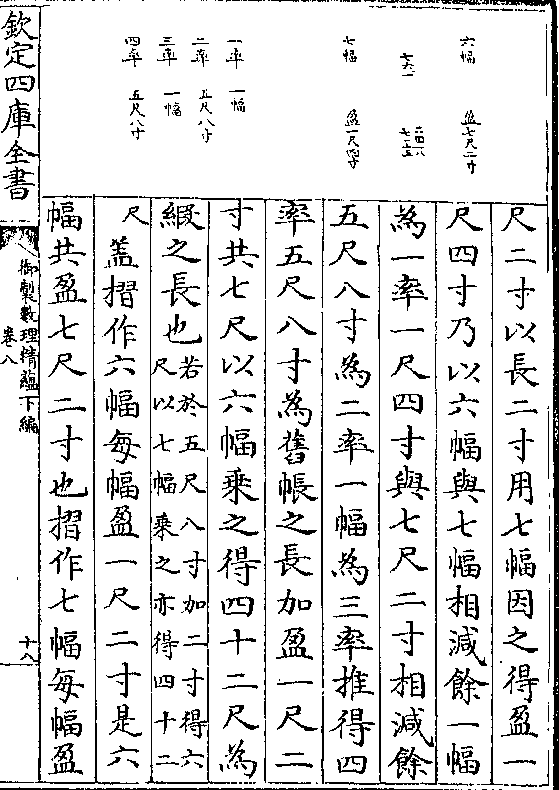 六幅　盈七尺二寸
七六一　二四八
七一五
七幅　盈一尺四寸
一率　一幅
二率　五尺八寸
三率　一幅
四率　五尺八寸
尺二寸以長二寸用七幅因之得盈一
尺四寸乃以六幅與七幅相減餘一幅
為一率一尺四寸與七尺二寸相減餘
五尺八寸為二率一幅為三率推得四
率五尺八寸為舊帳之長加盈一尺二
寸共七尺以六幅乘之得四十二尺為
緞之長也若於五尺八寸加二寸得六
尺以七幅乘之亦得四十二
尺蓋摺作六幅每幅盈一尺二寸是六
幅共盈七尺二寸也摺作七幅每幅盈
欽定四庫全書
御製數理精蘊下編
卷八
十八